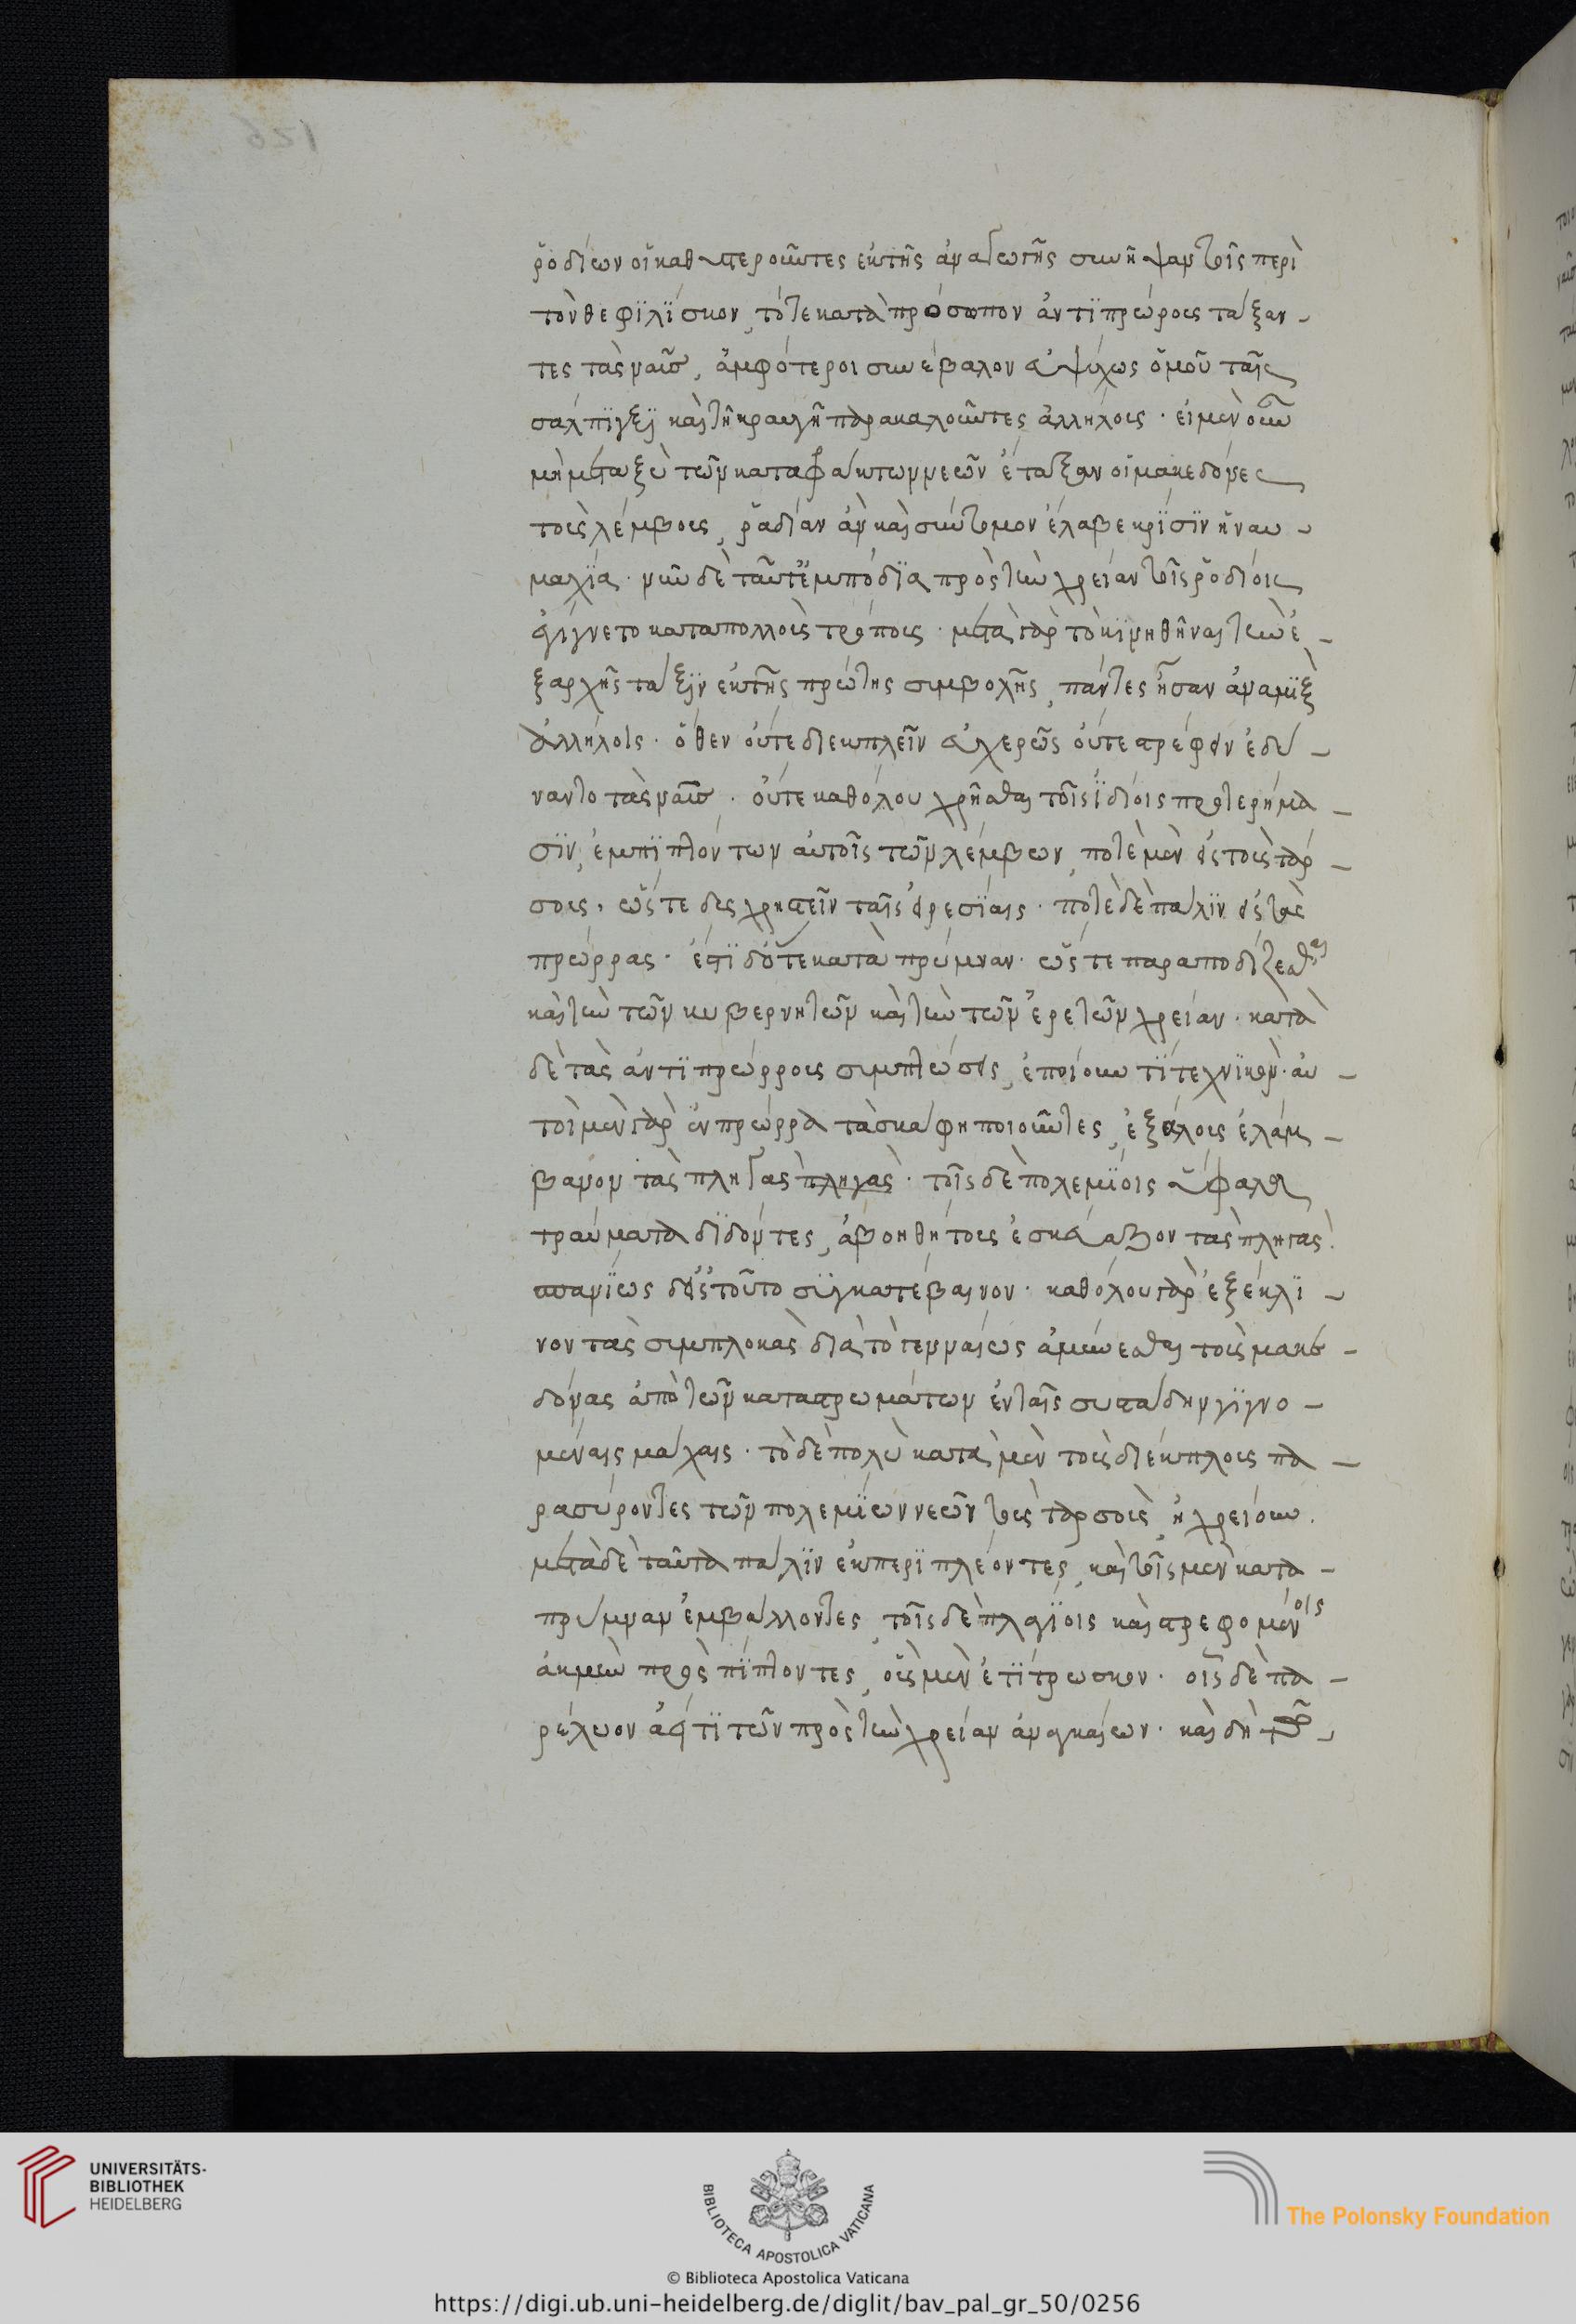 ῥοδίων οἱ καθυστεροῦντες ἐκ τῆς ἀναγωγῆς συνῆψαν τοῖς περὶ
τὸν θεφιλίσκον, τότε κατὰ πρόσωπον ἀντιπρώρους τάξαν-
τες τὰς ναῦς, ἀμφότεροι συνέβαλον εὐψύχως ὁμοῦ ταῖς
σάλπιγξι καὶ τῇ κραυγῇ παρακαλοῦντες ἀλλήλους · εἰ μὲν οὖν
μὴ μεταξὺ τῶν καταφράκτων νεῶν ἔταξαν οἱ μακεδόνες
τοὺς λέμβους, ῥαδίαν ἂν καὶ σύντομον ἔλαβε κρίσιν ἡ ναυ-
μαχία · νῦν δὲ ταῦτ' ἐμπόδια πρὸς τὴν χρείαν τοῖς ῥοδίοις
ἐγίγνετο κατὰ πολλοὺς τρόπους · μετὰ γὰρ τὸ κινηθῆναι τὴν ἐ-
ξαρχῆς τάξιν ἐκ τῆς πρώτης συμβολῆς, πάντες ἦσαν ἀναμὶξ
ἀλλήλοις · ὅθεν οὔτε διεκπλεῖν εὐχερῶς οὔτε στρέφειν ἐδύ-
ναντο τὰς ναῦς · οὔτε καθόλου χρῆσθαι τοῖς ἰδίοις προτερήμα-
σιν, ἐμπιπτόντων αὐτοῖς τῶν λέμβων, ποτὲ μὲν εἰς τοὺς ταρ-
σοὺς, ὥστε δυσχρηστεῖν ταῖς εἰρεσίαις · ποτὲ δὲ πάλιν εἰς τὰς
πρώρρας · ἔστι δ' ὅτε κατὰ πρύμναν · ὥστε παραποδίζεσθαι
καὶ τὴν τῶν κυβερνητῶν καὶ τὴν τῶν ἐρετῶν χρείαν · κατὰ
δὲ τὰς ἀντιπρώρρους συμπτώσεις, ἐποίουν τὶ τεχνικόν · αὐ-
τοὶ μὲν γὰρ ἐν πρώρρα τὰ σκάφη ποιοῦντες, ἐξάλους ἐλάμ-
βανον τὰς πληγὰς πληγὰς · τοῖς δὲ πολεμίοις ὕφαλα
τραύματα διδόντες, ἀβοηθήτους ἐσκεύαζον τὰς πληγάς ·
σπανίως δ' εἰς τοῦτο συγκατέβαινον · καθόλου γὰρ ἐξέκλι-
νον τὰς συμπλοκὰς διὰ τὸ γενναίως ἀμύνεσθαι τοὺς μακε-
δόνας ἀπὸ τῶν καταστρωμάτων ἐν ταῖς συστάδην γιγνο-
μέναις μάχαις · τὸ δὲ πολὺ κατὰ μὲν τοὺς διέκπλους πα-
ρασύροντες τῶν πολεμίων νεῶν τοὺς ταρσοὺς, ἠχρείουν ·
μετὰ δὲ ταῦτα πάλιν ἐκπεριπλέοντες, καὶ τοῖς μὲν κατὰ-
πρύμναν ἐμβάλλοντες, τοῖς δὲ πλαγίοις καὶ στρεφομένοις
ἀκμὴν προσπίπτοντες, οὓς μὲν ἐτίτρωσκον · οἷς δὲ πα-
ρέλυον ἀεί τι τῶν πρὸς τὴν χρείαν ἀναγκαίων · καὶ δὴ
UNIVERSITÄTS-
BIBLIOTHEK
HEIDELBERG
BIBLIOTECA APOSTOLICA VATICANA
The Polonsky Foundation
© Biblioteca Apostolica Vaticana
https://digi.ub.uni-heidelberg.de/diglit/bav_pal_gr_50/0256